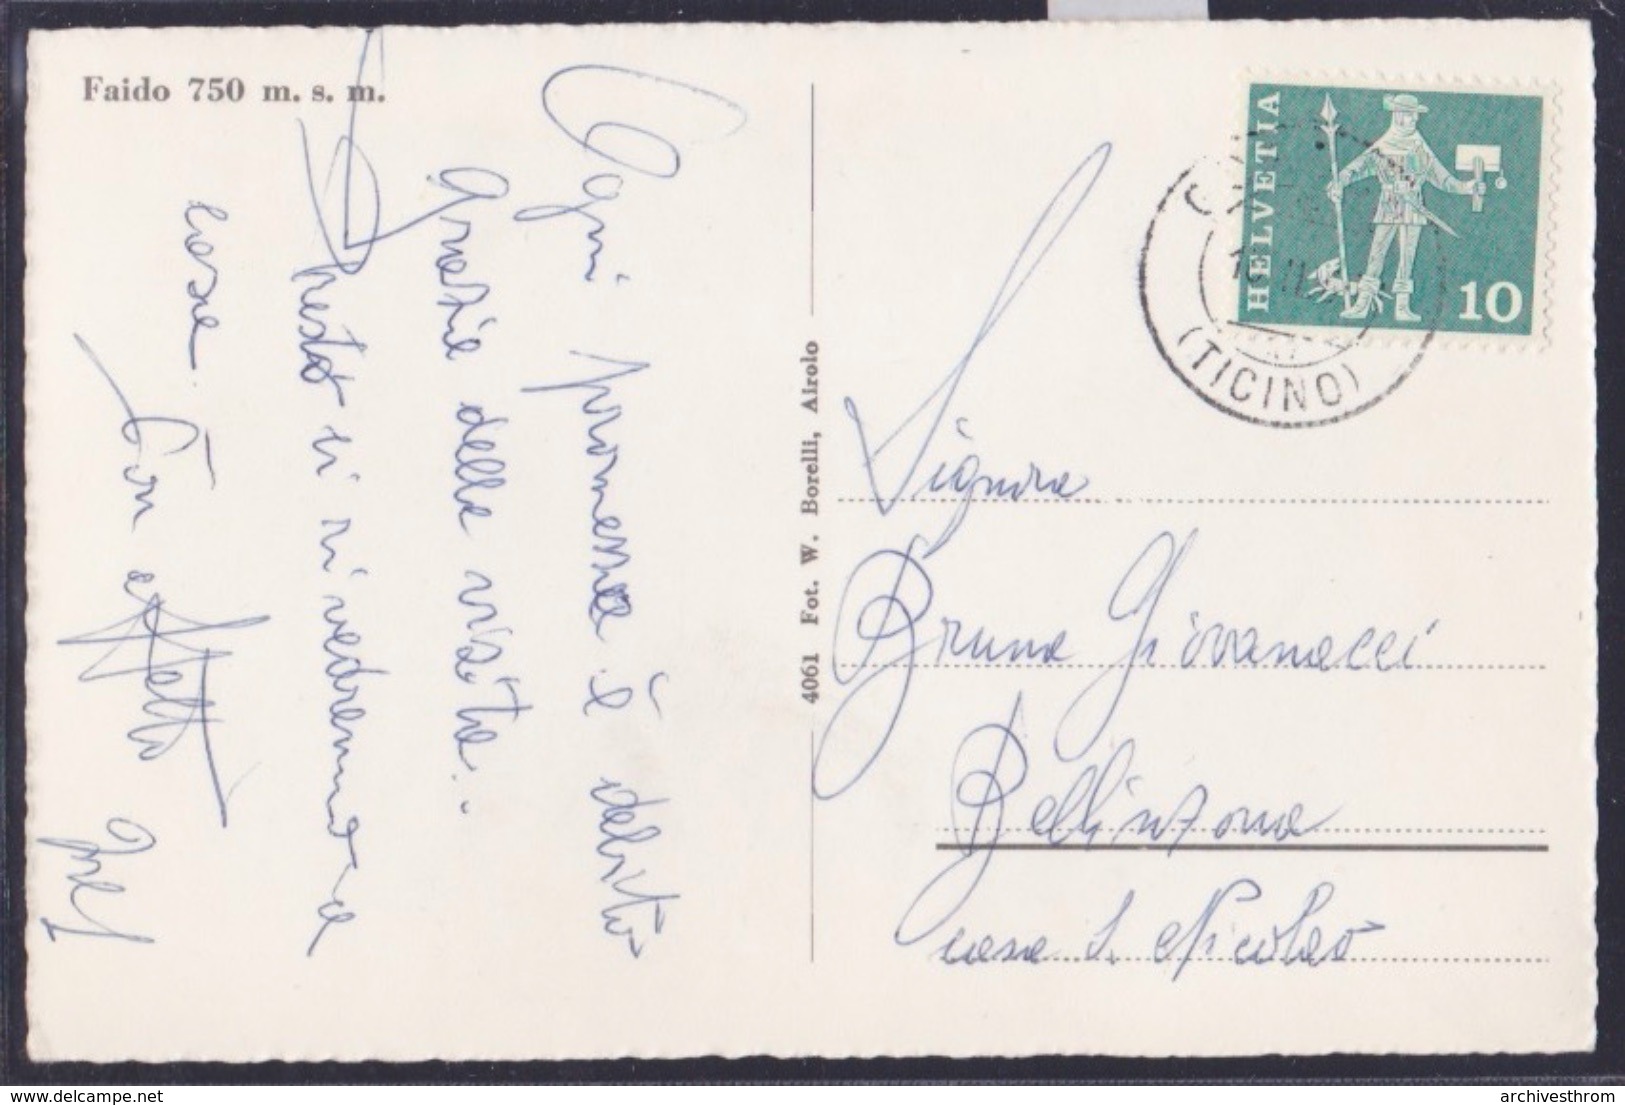 Faido 750 m. s. m.
Ogni promessa è debito
Grazie della visita.
Presto ci rivedremo a
casa. Con affetto
4061 Fot. W. Borelli, Airolo
HELVETIA
10
(TICINO)
Signora
Bruna Giovanacci
Bellinzona
casa S. Nicolao
delcampe.net
archivesthrom